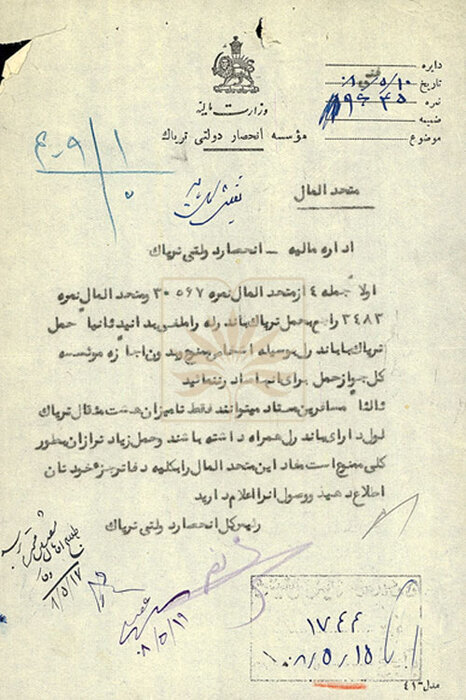 وزارت مالیه
مؤسسه انحصار دولتی تریاک
دایره
تاریخ ۱۰/۵/۰۸
نمره
ضمیمه
موضوع
۴۰۹/۱
متحد المال
اداره مالیه – انحصار دولتی تریاک
اولا جمله ۴ از متحد المال نمره ۳۰۵۶۷ و متحد المال نمره
۳۴۸۳ راجع بحمل تریاک باندرله را ملغی بدانید ثانیا حمل
تریاک با باندرل بوسیله اشخاص ممنوع بدون اجازه موسسه
کل جواز حمل برای احدی صادر ننمائید
ثالثا مسافرین معتاد میتوانند فقط تا میزان هشت مثقال تریاک
لول دارای باندرل همراه داشته باشند و حمل زیادتر از آن بطور
کلی ممنوع است مفاد این متحد المال را بکلیه دفاتر جزء خودتان
اطلاع دهید و وصول آنرا اعلام دارید
رئیس کل انحصار دولتی تریاک
۸/۵/۱۷
۰۸/۵/۱۹
۱۷۴۴
۰۸/۵/۱۵
مدل ۴۱